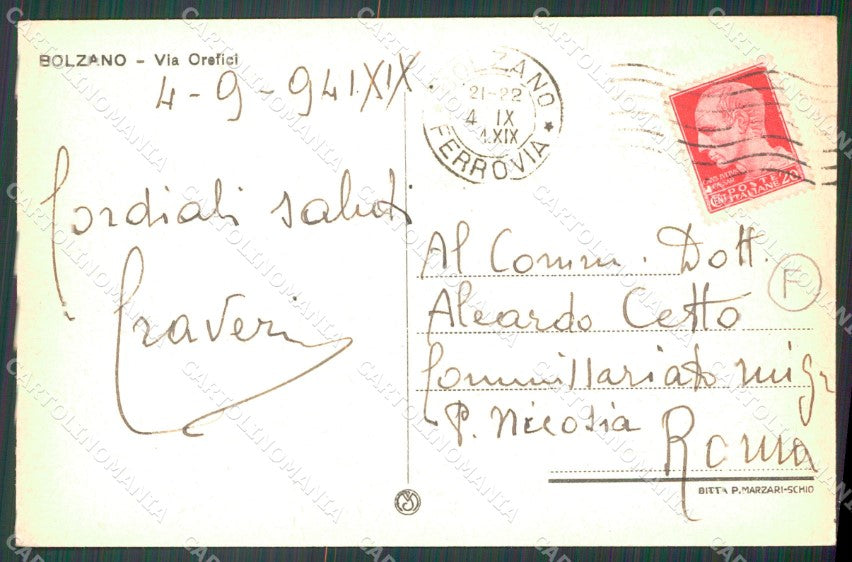 BOLZANO – Via Orefici
4-9-941 XIX.
Cordiali saluti
Traveri
BOLZANO
21-22
4 IX
41XIX
FERROVIA
POSTE
ITALIANE
CENT 20
Al Comm. Dott.
Alcardo Cetto
Commissariato migr
P. Nicosia
Roma
F
DITTA P. MARZARI-SCHIO
CARTOLINOMANIA